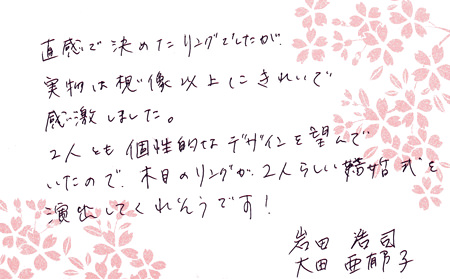 直感で決めたリングでしたが、
実物は想像以上にきれいで
感激しました。
2人とも個性的なデザインを望んで
いたので、木目のリングが、2人らしい結婚式を
演出してくれそうです！
岩田 浩司
大田 亜郁子